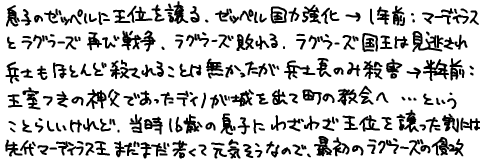 息子のゼッペルに王位を譲る、ゼッペル国力強化→1年前：マーディラス
とラグラーズ再び戦争、ラグラーズ敗れる、ラグラーズ国王は見逃され
兵士もほとんど殺されることは無かったが兵士長のみ殺害→半年前：
王室つきの神父であったディノが城を出て町の教会へ …という
ことらしいけれど、当時16歳の息子にわざわざ王位を譲った割には
先代マーディラス王まだまだ若くて元気そうなので、最初のラグラーズの侵攻